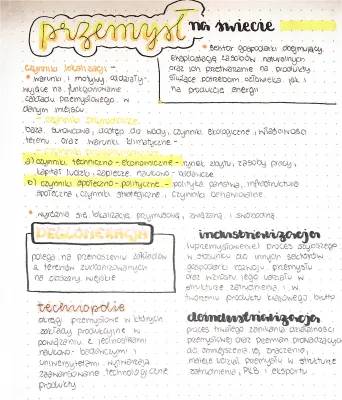 przemysł na świecie
• sektor gospodarki obejmujący
eksploatację zasobów naturalnych
oraz ich przetwarzanie na produkty
służące potrzebom człowieka jak i
na produkcję energii
czynniki lokalizacji -
• warunki i motywy oddziały-
wujące na funkcjonowanie
zakładu przemysłowego w
danym miejscu
- czynniki przyrodnicze
baza surowcowa, dostęp do wody, czynniki ekologiczne, właściwości
terenu, oraz warunki klimatyczne -
a) czynniki techniczno-ekonomiczne - rynek zbytu, zasoby pracy,
kapitał ludzki, zaplecze naukowo-badawcze
b) czynniki społeczno-polityczne - polityka państwa, infrastruktura
społeczna, czynniki strategiczne,
• wyróżnia się lokalizację przymusową, związaną i swobodną
DEGLOMERACJA
polega na przenoszeniu zakładów
z terenów zurbanizowanych
na obszary wiejskie
industrializacja
(uprzemysłowienie) proces szybszego
w stosunku do innych sektorów
gospodarki rozwoju przemysłu
oraz wzrostu jego udziału w
strukturze zatrudnienia i w
tworzeniu produktu krajowego brutto
technopolie
okręgi przemysłowe w których
zakłady produkcyjne w
powiązaniu z jednostkami
naukowo-badawczymi i
uniwersytetami wytwarzają
zaawansowane technologicznie
produkty
deindustrializacja
proces trwałego zanikania działalności
przemysłowej oraz przemian prowadzących
do zmniejszenia jej znaczenia,
maleje udział przemysłu w strukturze
zatrudnienia, PKB i eksportu